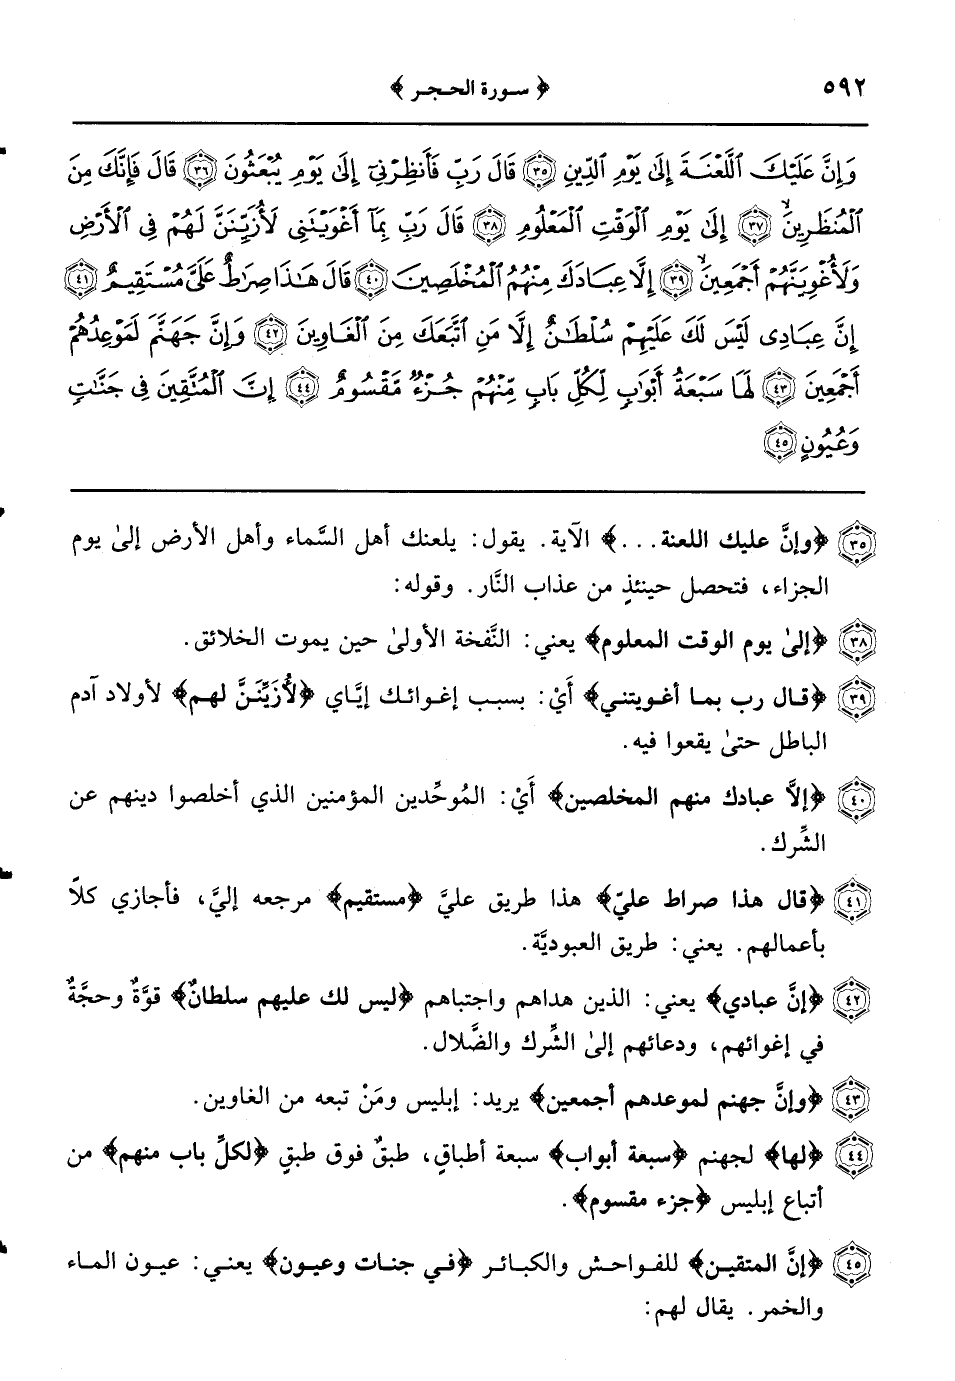 ٥٩٢ ﴿ سورة الحجر ﴾
وَإِنَّ عَلَيْكَ ٱللَّعْنَةَ إِلَىٰ يَوْمِ ٱلدِّينِ ﴿٣٥﴾ قَالَ رَبِّ فَأَنظِرْنِىٓ إِلَىٰ يَوْمِ يُبْعَثُونَ ﴿٣٦﴾ قَالَ فَإِنَّكَ مِنَ
ٱلْمُنظَرِينَ ﴿٣٧﴾ إِلَىٰ يَوْمِ ٱلْوَقْتِ ٱلْمَعْلُومِ ﴿٣٨﴾ قَالَ رَبِّ بِمَآ أَغْوَيْتَنِى لَأُزَيِّنَنَّ لَهُمْ فِى ٱلْأَرْضِ
وَلَأُغْوِيَنَّهُمْ أَجْمَعِينَ ﴿٣٩﴾ إِلَّا عِبَادَكَ مِنْهُمُ ٱلْمُخْلَصِينَ ﴿٤٠﴾ قَالَ هَـٰذَا صِرَٰطٌ عَلَىَّ مُسْتَقِيمٌ ﴿٤١﴾
إِنَّ عِبَادِى لَيْسَ لَكَ عَلَيْهِمْ سُلْطَـٰنٌ إِلَّا مَنِ ٱتَّبَعَكَ مِنَ ٱلْغَاوِينَ ﴿٤٢﴾ وَإِنَّ جَهَنَّمَ لَمَوْعِدُهُمْ
أَجْمَعِينَ ﴿٤٣﴾ لَهَا سَبْعَةُ أَبْوَٰبٍ لِكُلِّ بَابٍ مِّنْهُمْ جُزْءٌ مَّقْسُومٌ ﴿٤٤﴾ إِنَّ ٱلْمُتَّقِينَ فِى جَنَّـٰتٍ
وَعُيُونٍ ﴿٤٥﴾
﴿٣٥﴾ ﴿وإنَّ عليك اللعنة...﴾ الآية. يقول: يلعنك أهل السَّماء وأهل الأرض إلىٰ يوم
الجزاء، فتحصل حينئذٍ من عذاب النَّار. وقوله:
﴿٣٨﴾ ﴿إلىٰ يوم الوقت المعلوم﴾ يعني: النَّفخة الأولىٰ حين يموت الخلائق.
﴿٣٩﴾ ﴿قال رب بما أغويتني﴾ أَيْ: بسبب إغوائك إيَّاي ﴿لأُزَيِّنَنَّ لهم﴾ لأولاد آدم
الباطل حتىٰ يقعوا فيه.
﴿٤٠﴾ ﴿إلاَّ عبادك منهم المخلصين﴾ أَيْ: المُوحِّدين المؤمنين الذي أخلصوا دينهم عن
الشِّرك.
﴿٤١﴾ ﴿قال هذا صراط عليّ﴾ هذا طريق عليَّ ﴿مستقيم﴾ مرجعه إليَّ، فأجازي كلاًّ
بأعمالهم. يعني: طريق العبوديَّة.
﴿٤٢﴾ ﴿إنَّ عبادي﴾ يعني: الذين هداهم واجتباهم ﴿ليس لك عليهم سلطانٌ﴾ قوَّةٌ وحجَّةٌ
في إغوائهم، ودعائهم إلىٰ الشِّرك والضَّلال.
﴿٤٣﴾ ﴿وإنَّ جهنم لموعدهم أجمعين﴾ يريد: إبليس ومَنْ تبعه من الغاوين.
﴿٤٤﴾ ﴿لها﴾ لجهنم ﴿سبعة أبواب﴾ سبعة أطباقٍ، طبقٌ فوق طبقٍ ﴿لكلِّ باب منهم﴾ من
أتباع إبليس ﴿جزء مقسوم﴾.
﴿٤٥﴾ ﴿إنَّ المتقين﴾ للفواحش والكبائر ﴿في جنات وعيون﴾ يعني: عيون الماء
والخمر. يقال لهم: